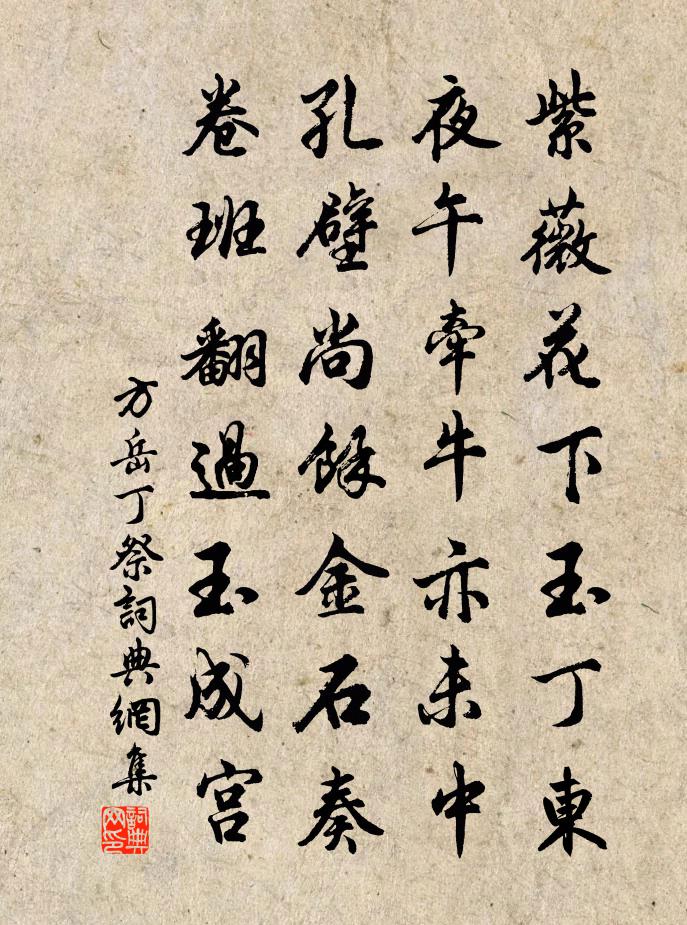 紫薇花下玉丁東
夜午牽牛亦未中
孔壁尚餘金石奏
卷班翻過玉成宮
方岳丁祭詞典網集
詞典网印